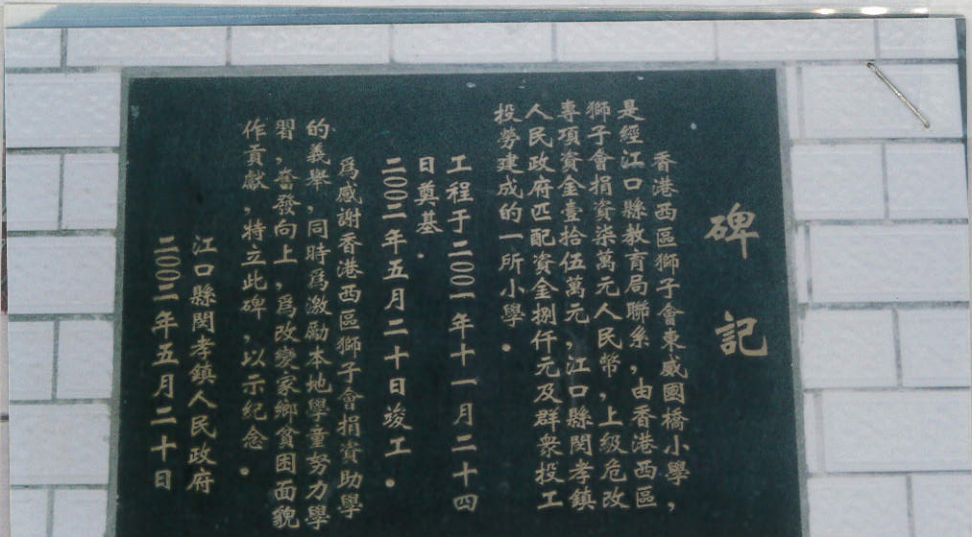 碑記
香港西區獅子會東威國橋小學，
是經江口縣教育局聯系，由香港西區
獅子會捐資柒萬元人民幣，上級危改
專項資金壹拾伍萬元，江口縣閔孝鎮
人民政府匹配資金捌仟元及群衆投工
投勞建成的一所小學。
工程于二00一年十一月二十四
日奠基。
二00二年五月二十日竣工。
爲感謝香港西區獅子會捐資助學
的義舉，同時爲激勵本地學童努力學
習，奮發向上，爲改變家鄉貧困面貌
作貢獻，特立此碑，以示紀念。
江口縣閔孝鎮人民政府
二00二年五月二十日